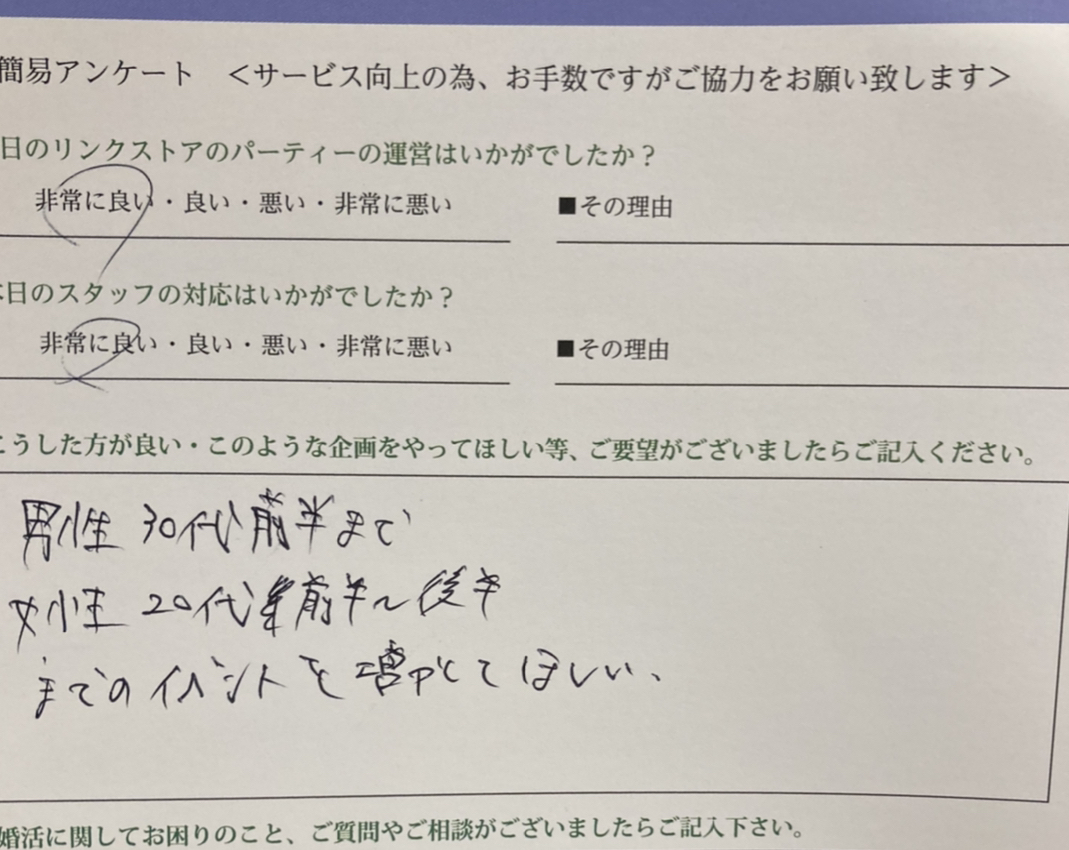 簡易アンケート ＜サービス向上の為、お手数ですがご協力をお願い致します＞
日のリンクストアのパーティーの運営はいかがでしたか？
非常に良い・良い・悪い・非常に悪い ■その理由
本日のスタッフの対応はいかがでしたか？
非常に良い・良い・悪い・非常に悪い ■その理由
こうした方が良い・このような企画をやってほしい等、ご要望がございましたらご記入ください。
男性 30代前半まで
女性 20代前半〜後半
までのイベントを増やしてほしい、
婚活に関してお困りのこと、ご質問やご相談がございましたらご記入下さい。